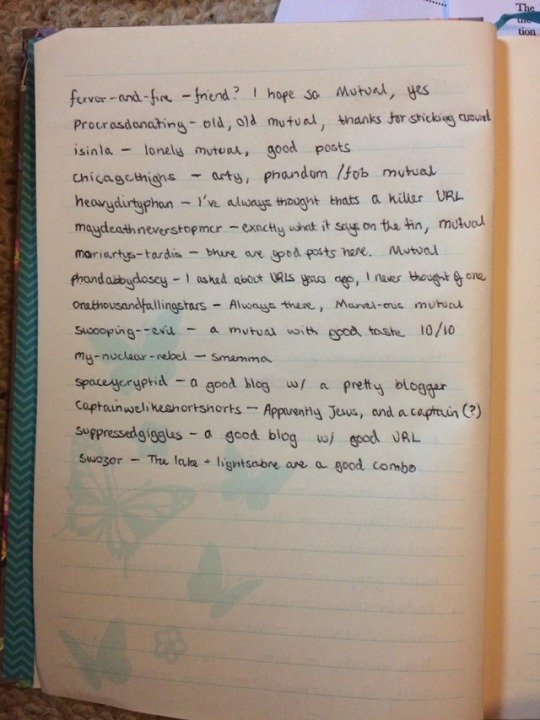 The
the
tion
fervor-and-fire - friend? I hope so Mutual, yes
Procrasdonating - old, old mutual, thanks for sticking around
isinla - lonely mutual, good posts
chicagothighs - arty, phandom /fob mutual
heavydirtyphan - I've always thought thats a killer URL
maydeathneverstopmcr - exactly what it says on the tin, mutual
moriartys-tardis - there are good posts here. Mutual
phandabbydoscy - I asked about URLs years ago, I never thought of one
onethousandfallingstars - Always there, Marvel-ous mutual
swooping--evil - a mutual with good taste 10/10
my-nuclear-rebel - smemma
spaceycryptid - a good blog w/ a pretty blogger
Captainwelikeshortshorts - Apparently Jesus, and a captain (?)
suppressedgiggles - a good blog w/ good URL
swozor - The lake + lightsabre are a good combo